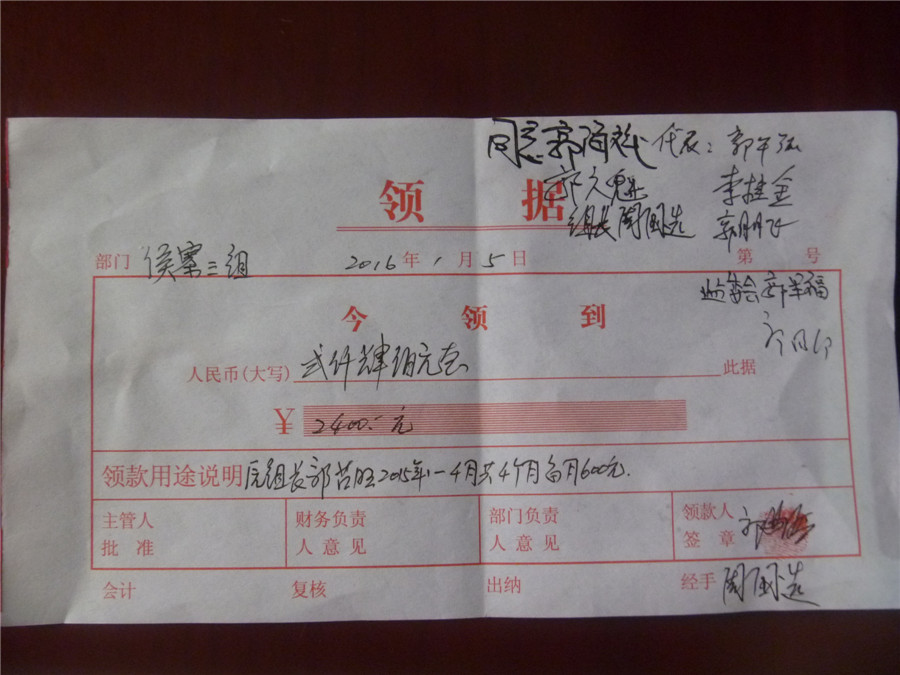 同意 代表：郭午弘
李桂金
领据
组长周国选 郭朋飞
部门 侯寨三组 2016年1月5日 第 号
监委会
今领到
人民币(大写) 贰仟肆佰元 此据
¥ 2400.元
领款用途说明 组长郭 2015年1-4月共4个月每月600元.
主管人 财务负责 部门负责 领款人
批准 人意见 人意见 签章
会计 复核 出纳 经手 周国选